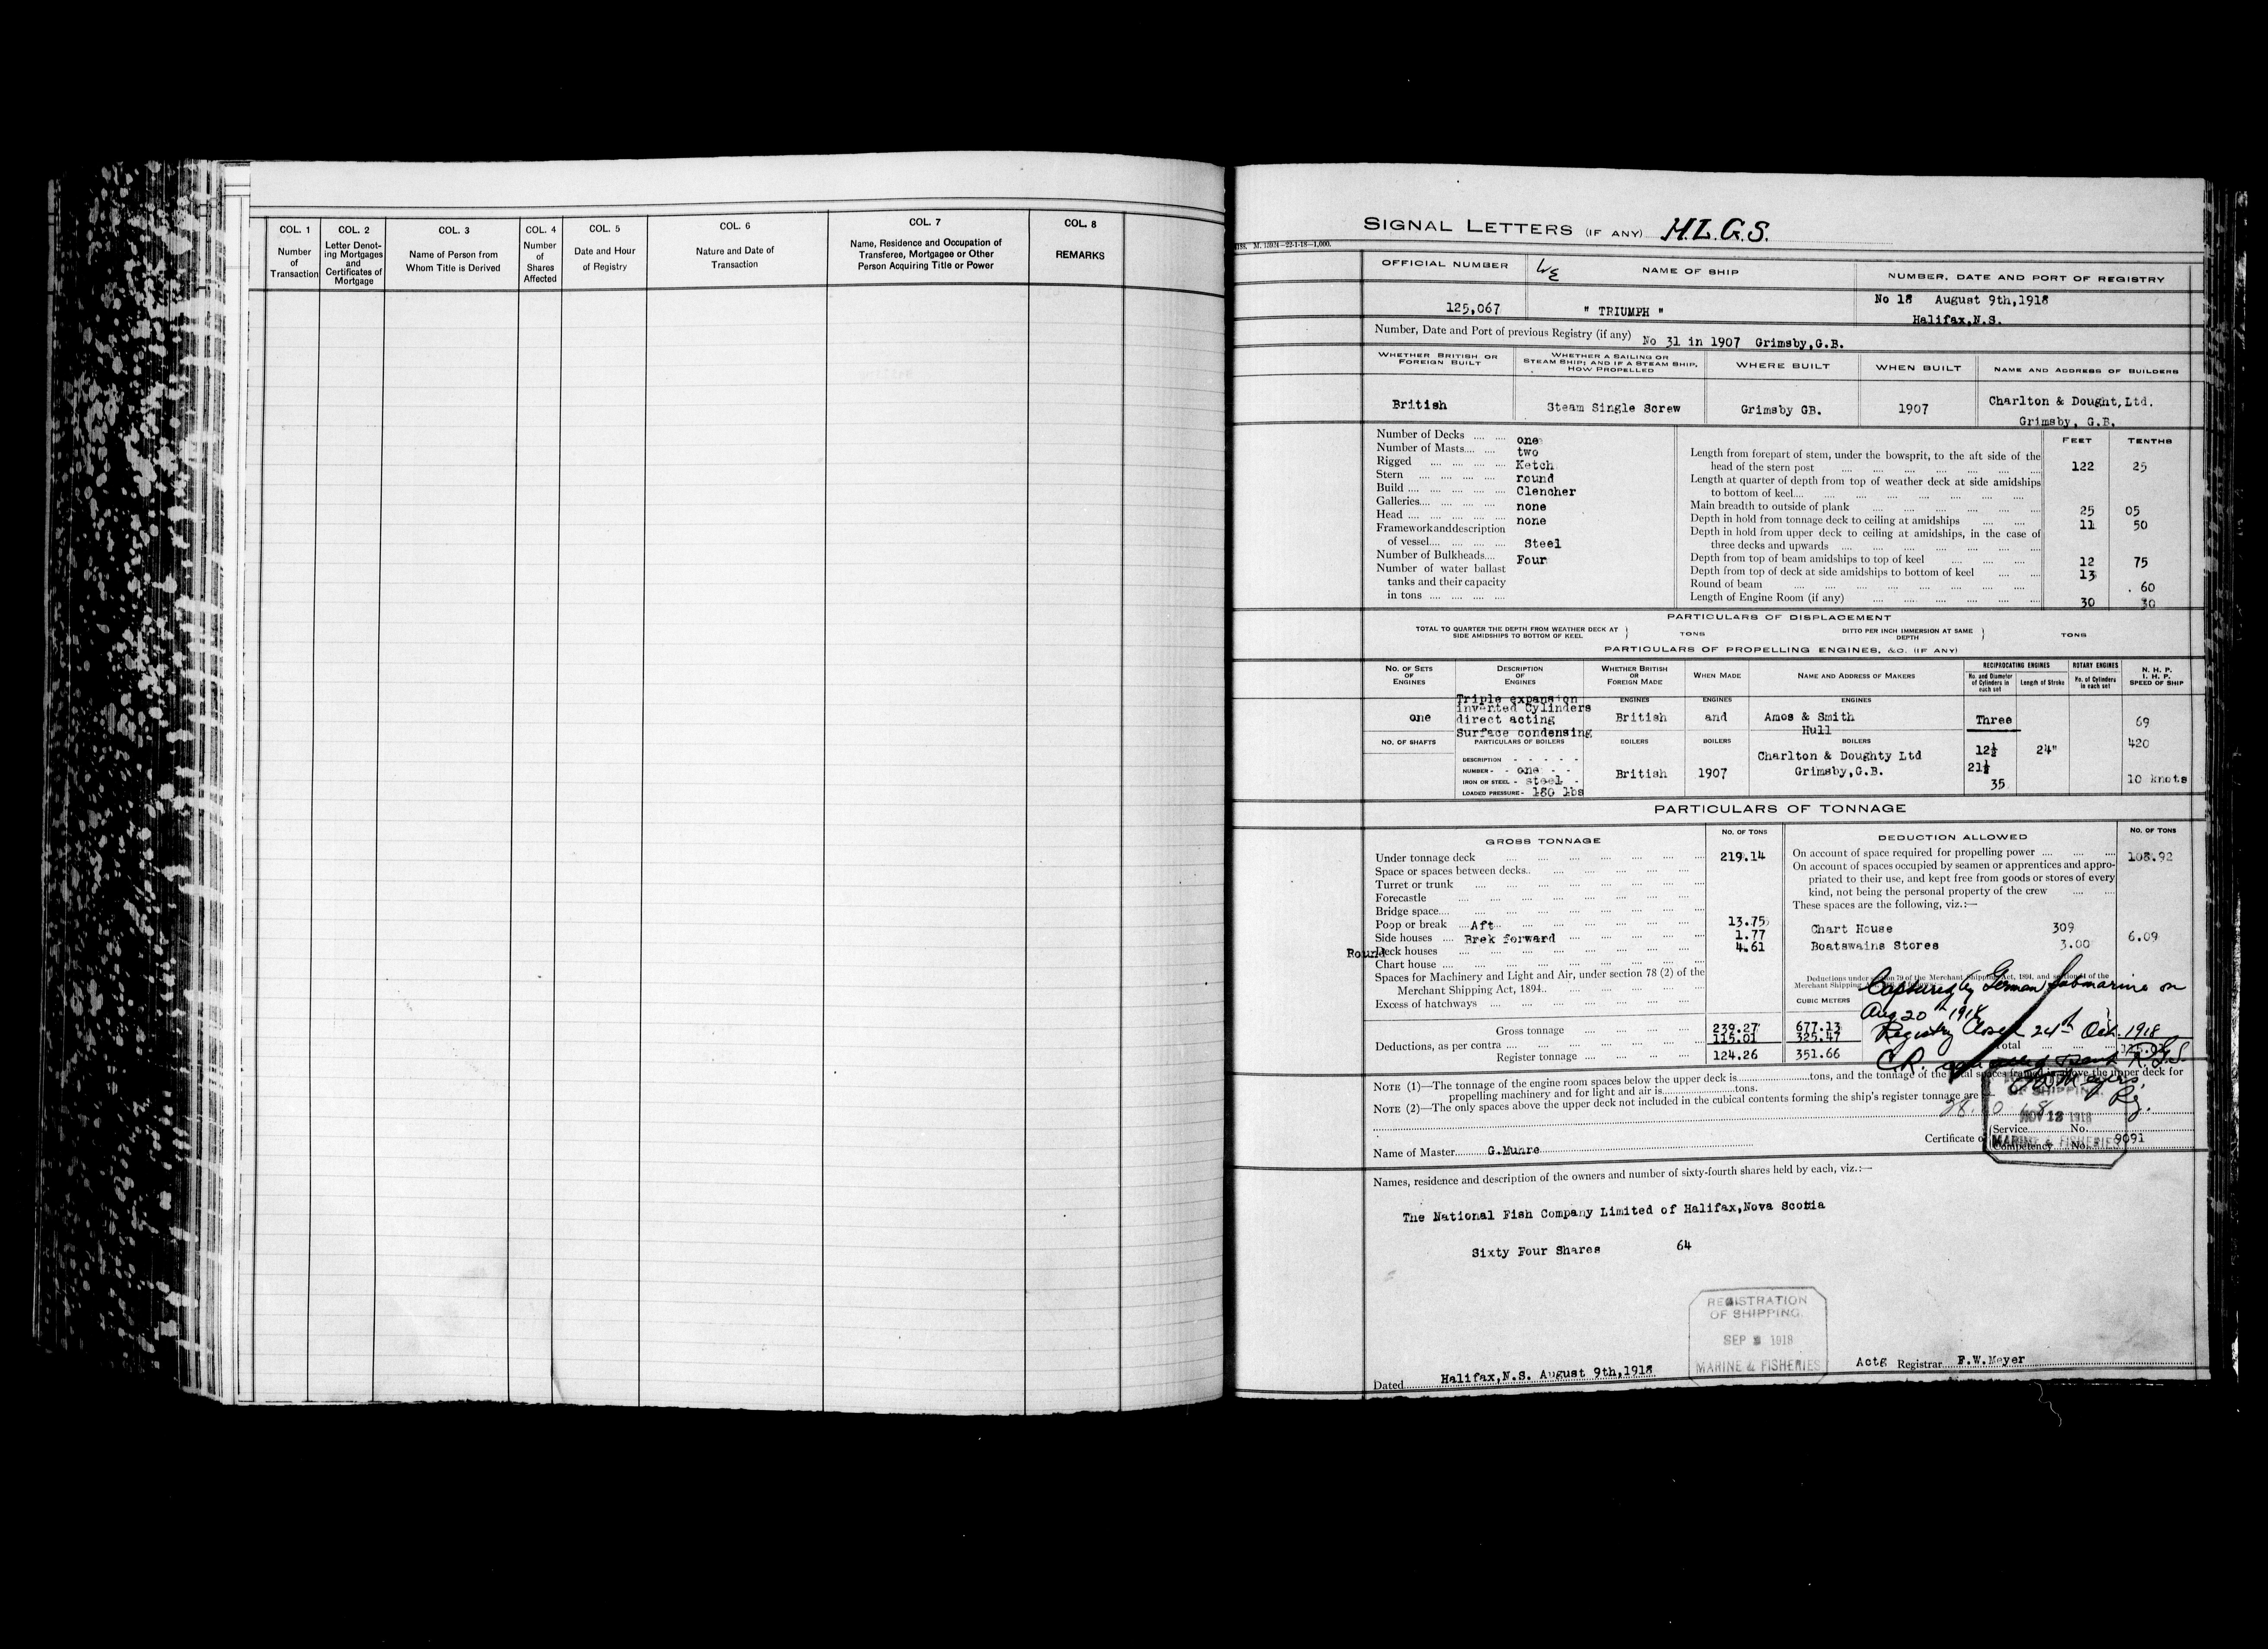 COL. 1
Number
of
Transaction
COL. 2
Letter Denot-
ing Mortgages
and
Certificates of
Mortgage
COL. 3
Name of Person from
Whom Title is Derived
COL. 4
Number
of
Shares
Affected
COL. 5
Date and Hour
of Registry
COL. 6
Nature and Date of
Transaction
COL. 7
Name, Residence and Occupation of
Transferee, Mortgagee or Other
Person Acquiring Title or Power
COL. 8
REMARKS
SIGNAL LETTERS (IF ANY) H.L.G.S.
22-1-18—1,000.
OFFICIAL NUMBER
NAME OF SHIP
NUMBER, DATE AND PORT OF REGISTRY
125,067
" TRIUMPH "
No 18 August 9th,1918
Halifax,N.S.
Number, Date and Port of previous Registry (if any) No 31 in 1907 Grimsby,G.B.
WHETHER BRITISH OR
FOREIGN BUILT
WHETHER A SAILING OR
STEAM SHIP; AND IF A STEAM SHIP,
HOW PROPELLED
WHERE BUILT
WHEN BUILT
NAME AND ADDRESS OF BUILDERS
British
Steam Single Screw
Grimsby GB.
1907
Charlton & Dought,Ltd.
Grimsby, G.B.
Number of Decks .... .... one
Number of Masts.... .... two
Rigged .... .... .... .... Ketch
Stern .... .... .... .... round
Build .... .... .... .... .... Clencher
Galleries.... .... .... .... none
Head .... .... .... .... .... none
Framework and description
of vessel.... .... .... .... Steel
Number of Bulkheads.... Four
Number of water ballast
tanks and their capacity
in tons .... .... .... ....
FEET TENTHS
Length from forepart of stem, under the bowsprit, to the aft side of the
head of the stern post 122 25
Length at quarter of depth from top of weather deck at side amidships
to bottom of keel....
Main breadth to outside of plank 25 05
Depth in hold from tonnage deck to ceiling at amidships 11 50
Depth in hold from upper deck to ceiling at amidships, in the case of
three decks and upwards
Depth from top of beam amidships to top of keel 12 75
Depth from top of deck at side amidships to bottom of keel 13
Round of beam . 60
Length of Engine Room (if any) 30 30
PARTICULARS OF DISPLACEMENT
TOTAL TO QUARTER THE DEPTH FROM WEATHER DECK AT
SIDE AMIDSHIPS TO BOTTOM OF KEEL
TONS
DITTO PER INCH IMMERSION AT SAME
DEPTH
TONS
PARTICULARS OF PROPELLING ENGINES, &C. (IF ANY)
NO. OF SETS
OF
ENGINES
DESCRIPTION
OF
ENGINES
WHETHER BRITISH
OR
FOREIGN MADE
WHEN MADE
NAME AND ADDRESS OF MAKERS
RECIPROCATING ENGINES
No. and Diameter
of Cylinders in
each set
Length of Stroke
ROTARY ENGINES
No. of Cylinders
in each set
N. H. P.
I. H. P.
SPEED OF SHIP
one
Triple expansion
inverted Cylinders
direct acting
Surface condensing
ENGINES
British
ENGINES
and
ENGINES
Amos & Smith
Hull
Three
69
NO. OF SHAFTS
PARTICULARS OF BOILERS
DESCRIPTION - - - - -
NUMBER - - one - -
IRON OR STEEL - steel -
LOADED PRESSURE - 180 lbs
BOILERS
British
BOILERS
1907
BOILERS
Charlton & Doughty Ltd
Grimsby,G.B.
12½
21½
35
24"
420
10 knots
PARTICULARS OF TONNAGE
GROSS TONNAGE
NO. OF TONS
Under tonnage deck 219.14
Space or spaces between decks..
Turret or trunk
Forecastle
Bridge space....
Poop or break .... Aft 13.75
Side houses .... Brek forward 1.77
Round Deck houses 4.61
Chart house ....
Spaces for Machinery and Light and Air, under section 78 (2) of the
Merchant Shipping Act, 1894..
Excess of hatchways
Gross tonnage 239.27 677.13
Deductions, as per contra .... 115.01 325.47
Register tonnage .... 124.26 351.66
DEDUCTION ALLOWED
NO. OF TONS
On account of space required for propelling power 108.92
On account of spaces occupied by seamen or apprentices and appro-
priated to their use, and kept free from goods or stores of every
kind, not being the personal property of the crew
These spaces are the following, viz.:—
Chart House 309
Boatswains Stores 3.00
6.09
Deductions under section 79 of the Merchant Shipping Act, 1894, and section of the
Merchant Shipping
CUBIC METERS
Captured by German Submarine on
Aug 20th 1918
Registry Closed 24th Oct. 1918
Total
C.R.
NOTE (1)—The tonnage of the engine room spaces below the upper deck is tons, and the tonnage of the total spaces framed in above the upper deck for
propelling machinery and for light and air is tons.
NOTE (2)—The only spaces above the upper deck not included in the cubical contents forming the ship's register tonnage are
OF SHIPPING.
NOV 12 1918
MARINE & FISHERIES
Name of Master G.Munre
Certificate of
Service No.
Competency No. 9091
Names, residence and description of the owners and number of sixty-fourth shares held by each, viz.:—
The National Fish Company Limited of Halifax,Nova Scotia
Sixty Four Shares 64
REGISTRATION
OF SHIPPING.
SEP 1918
MARINE & FISHERIES
Dated Halifax,N.S. August 9th,1918
Actg Registrar F.W.Meyer